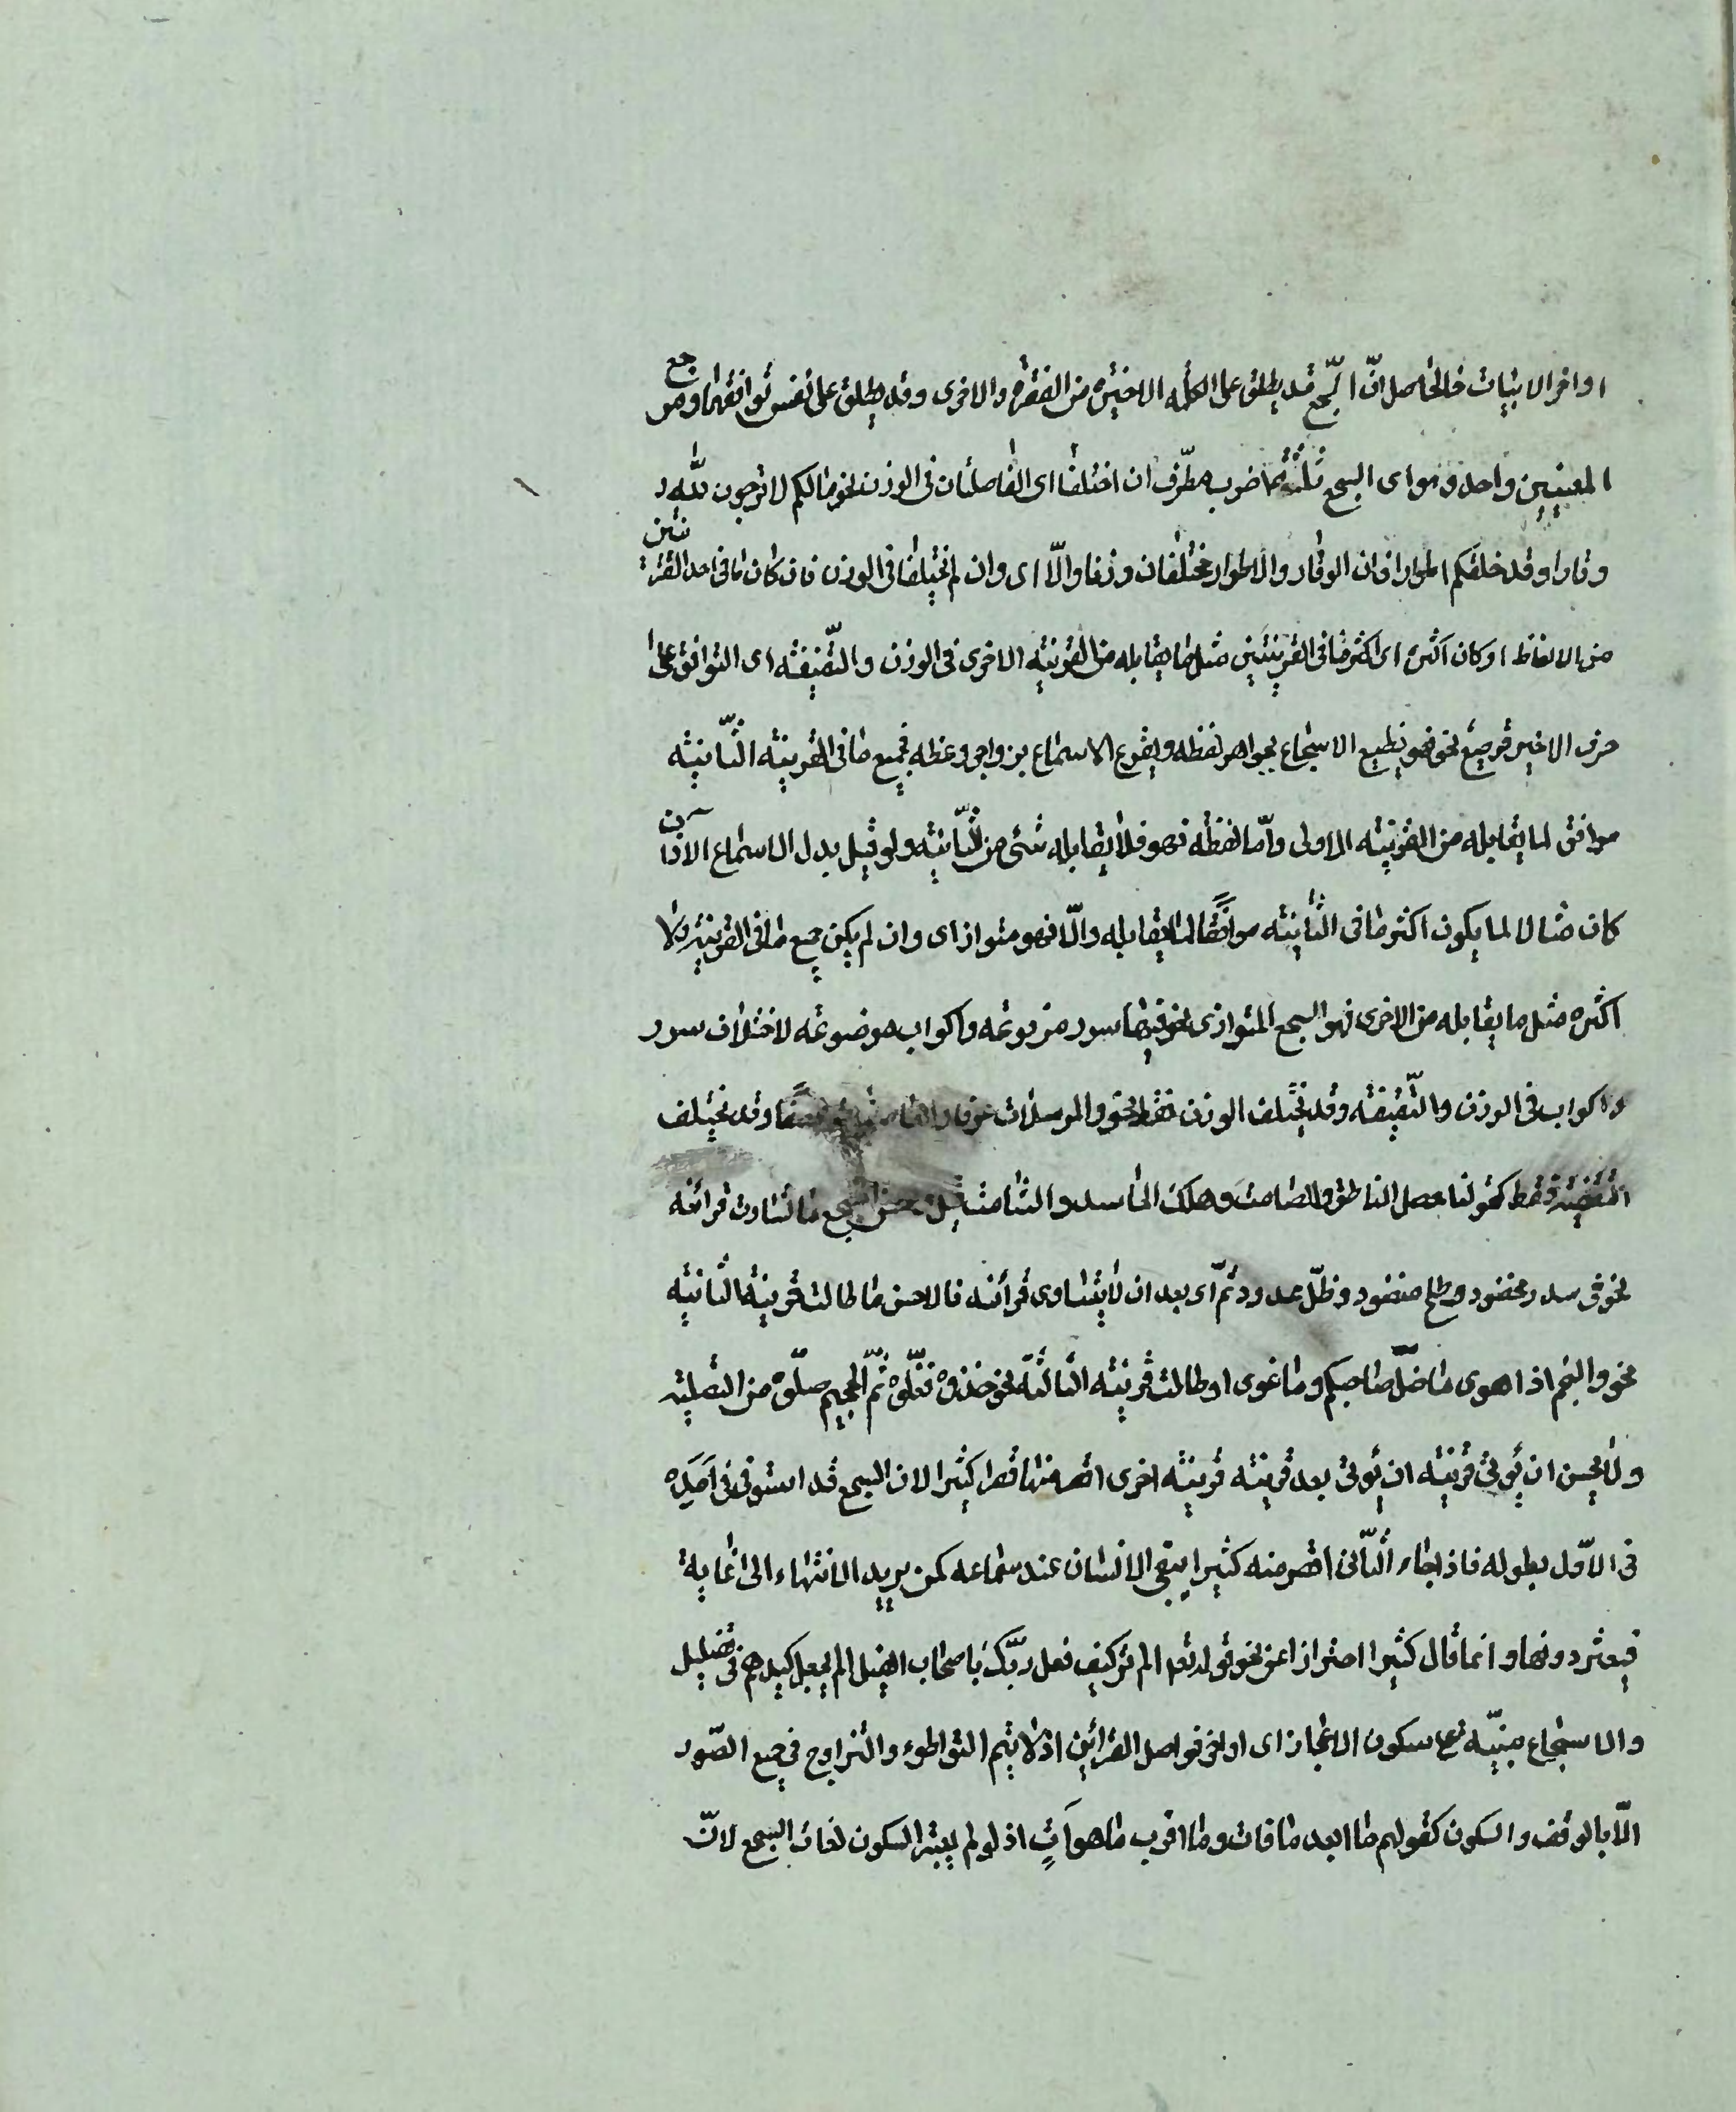 اواخر الابيات فالحاصل انّ السّجع قد يطلق على الكلمه الاخيره من الفقره والاخرى وقد يطلق على نفس توافقهما ومرجع
المعنيين واحد وهو اى السجع ثلثة اضرب مطرّف ان اختلفا اى الفاصلتان فى الوزن نحو مالكم لا ترجون لله
وقارا وقد خلقكم اطوارا فان الوقار والاطوار مختلفان وزنا والّا اى وان لم يختلفا فى الوزن فان كان ما فى احد القرينتين
من الالفاظ او كان اكثره اى اكثر ما فى القرينتين مثل ما يقابله من القرينه الاخرى فى الوزن والتّقفيه اى التوافق على
حرف الاخير ترصيع نحو فهو يطبع الاسجاع بجواهر لفظه ويقرع الاسماع بزواجر وعظه فجميع ما فى القرينه الثّانيه
موافق لما يقابله من القرينه الاولى وامّا لفظه فهو فلا يقابله شئ من الثّانيه ولو قيل بدل الاسماع الآذان
كان مثالا لما يكون اكثر ما فى الثانيه موافقًا لما يقابله والّا فهو متواز اى وان لم يكن جميع ما فى القرينه ولا
اكثره مثل ما يقابله من الاخرى فهو السجع المتوازى نحو فيها سرر مرفوعه واكواب موضوعه لاختلاف سرر
واكواب فى الوزن والتّقفيه وقد يختلف الوزن فقط نحو والمرسلات عرفا فالعاصفات عصفا وقد يختلف
التقفيه فقط كقولنا حصل الناطق والصامت وهلك الحاسد والشامت قيل حسن السجع ما تساوت قرائنه
نحو فى سدر مخضود وطلح منضود وظلّ ممدود ثمّ اى بعد ان لا يتساوى قرائنه فالاحسن ما طالت قرينته الثانيه
نحو والنجم اذا هوى ما ضلّ صاحبكم وما غوى او طالت قرينته الثالثه نحو خذوه فغلّوه ثمّ الجحيم صلّوه من التصليه
ولا يحسن ان يؤتى قرينه ان يؤتى بعد قرينه قرينه اخرى اقصر منها قصرا كثيرا لان السجع قد استوفى امده
فى الاوّل بطوله فاذا جاء الثّانى اقصر منه كثيرا يبقى الانسان عند سماعه كمن يريد الانتهاء الى غاية
فيعثر دونها وانما قال كثيرا احترازا عن نحو قوله تعه الم تر كيف فعل ربّك باصحاب الفيل الم يجعل كيدهم فى تضليل
والاسجاع مبنيّه على سكون الاعجاز اى اواخر فواصل القرائن اذ لا يتم التواطوء والتزاوج فى جميع الصّور
الّا بالوقف والسكون كقولهم ما ابعد ما فات وما اقرب ما هو آتٍ اذ لو لم يعتبر السكون لفات السجع لانّ